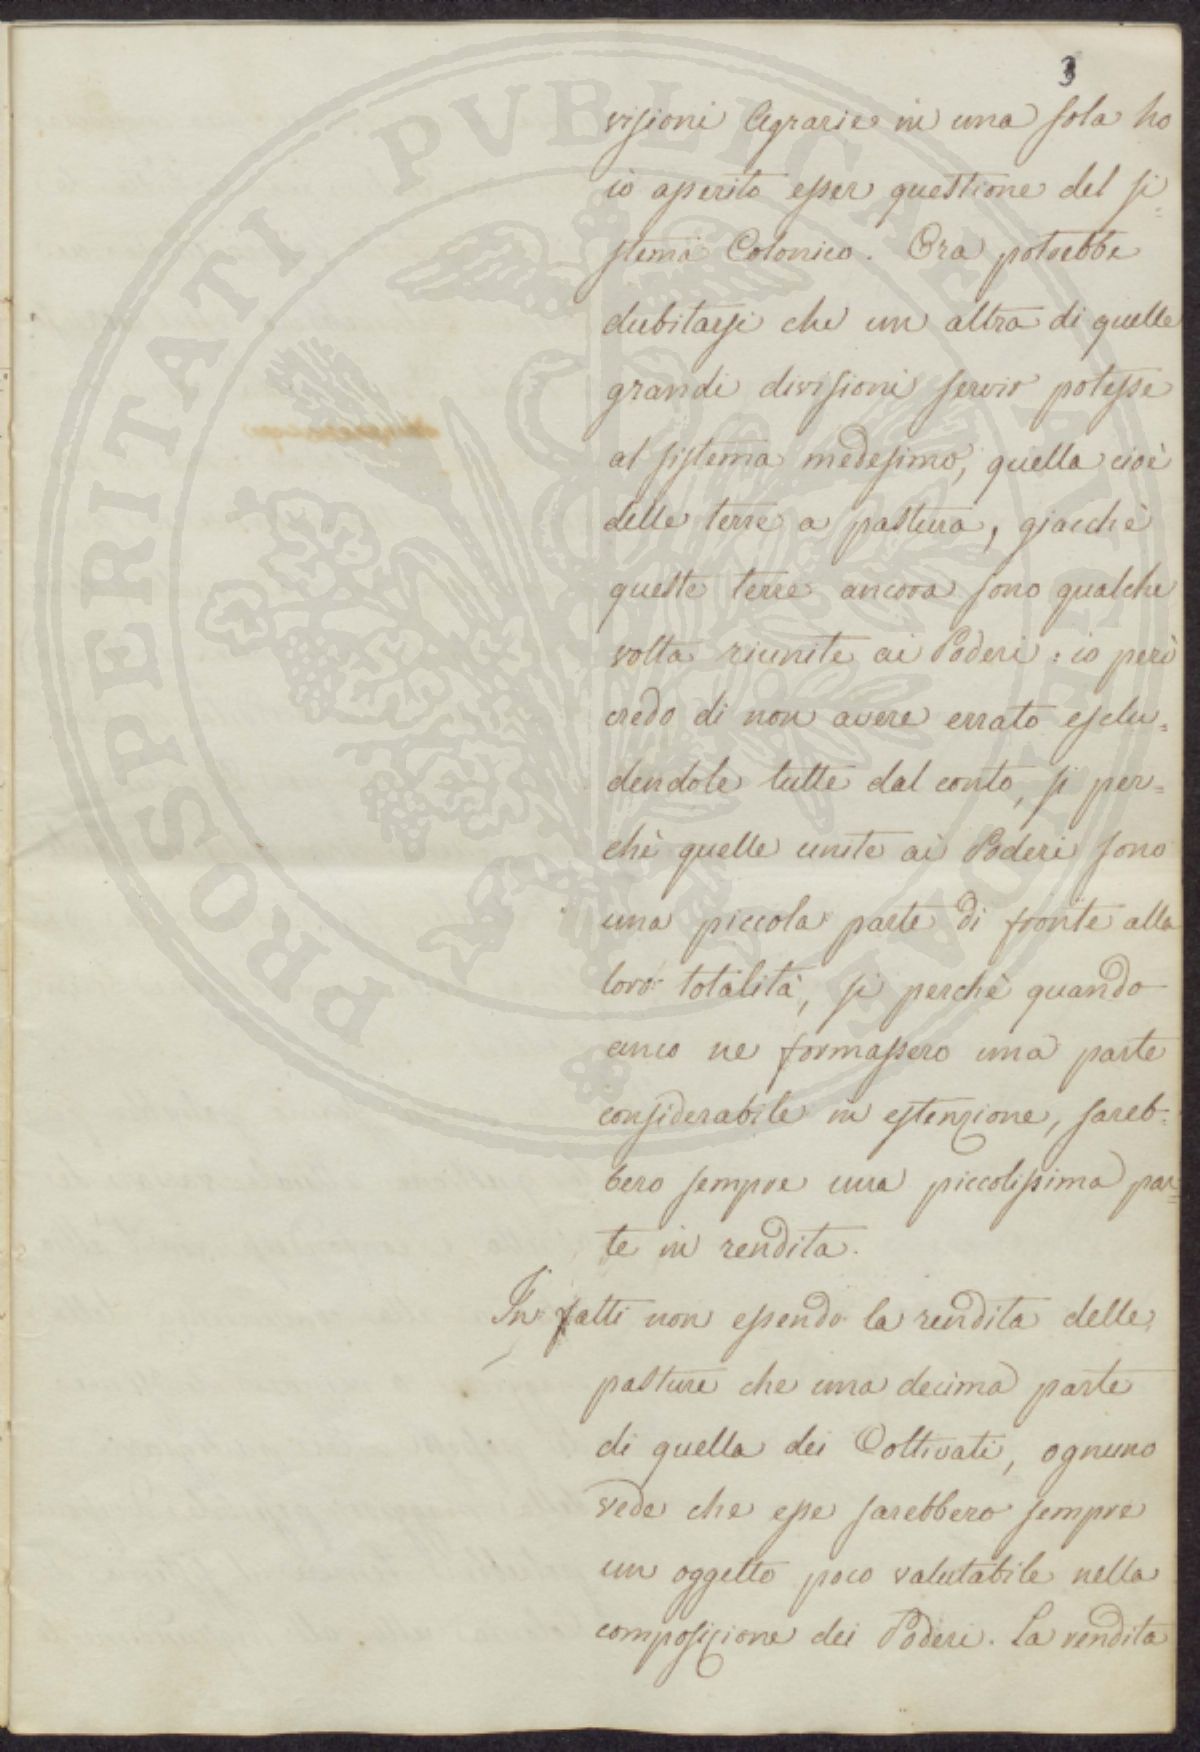 3
visioni Agrarie in una sola ho
io asserito esser questione del si=
stema Colonico. Ora potrebbe
dubitarsi che un altra di quelle
grandi divisioni servir potesse
al sistema medesimo, quella cioè
delle terre a pastura, giacchè
queste terre ancora sono qualche
volta riunite ai Poderi: io però
credo di non avere errato esclu=
dendole tutte dal conto, si per=
chè quelle unite ai Poderi sono
una piccola parte di fronte alla
loro totalità, si perchè quando
anco ne formassero una parte
considerabile in estenzione, sareb=
bero sempre una piccolissima par=
te in rendita.
In fatti non essendo la rendita delle
pasture che una decima parte
di quella dei Coltivati, ognuno
vede che esse sarebbero sempre
un oggetto poco valutabile nella
composizione dei Poderi. La rendita
PROSPERITATI PVBLICAE AVGENDAE